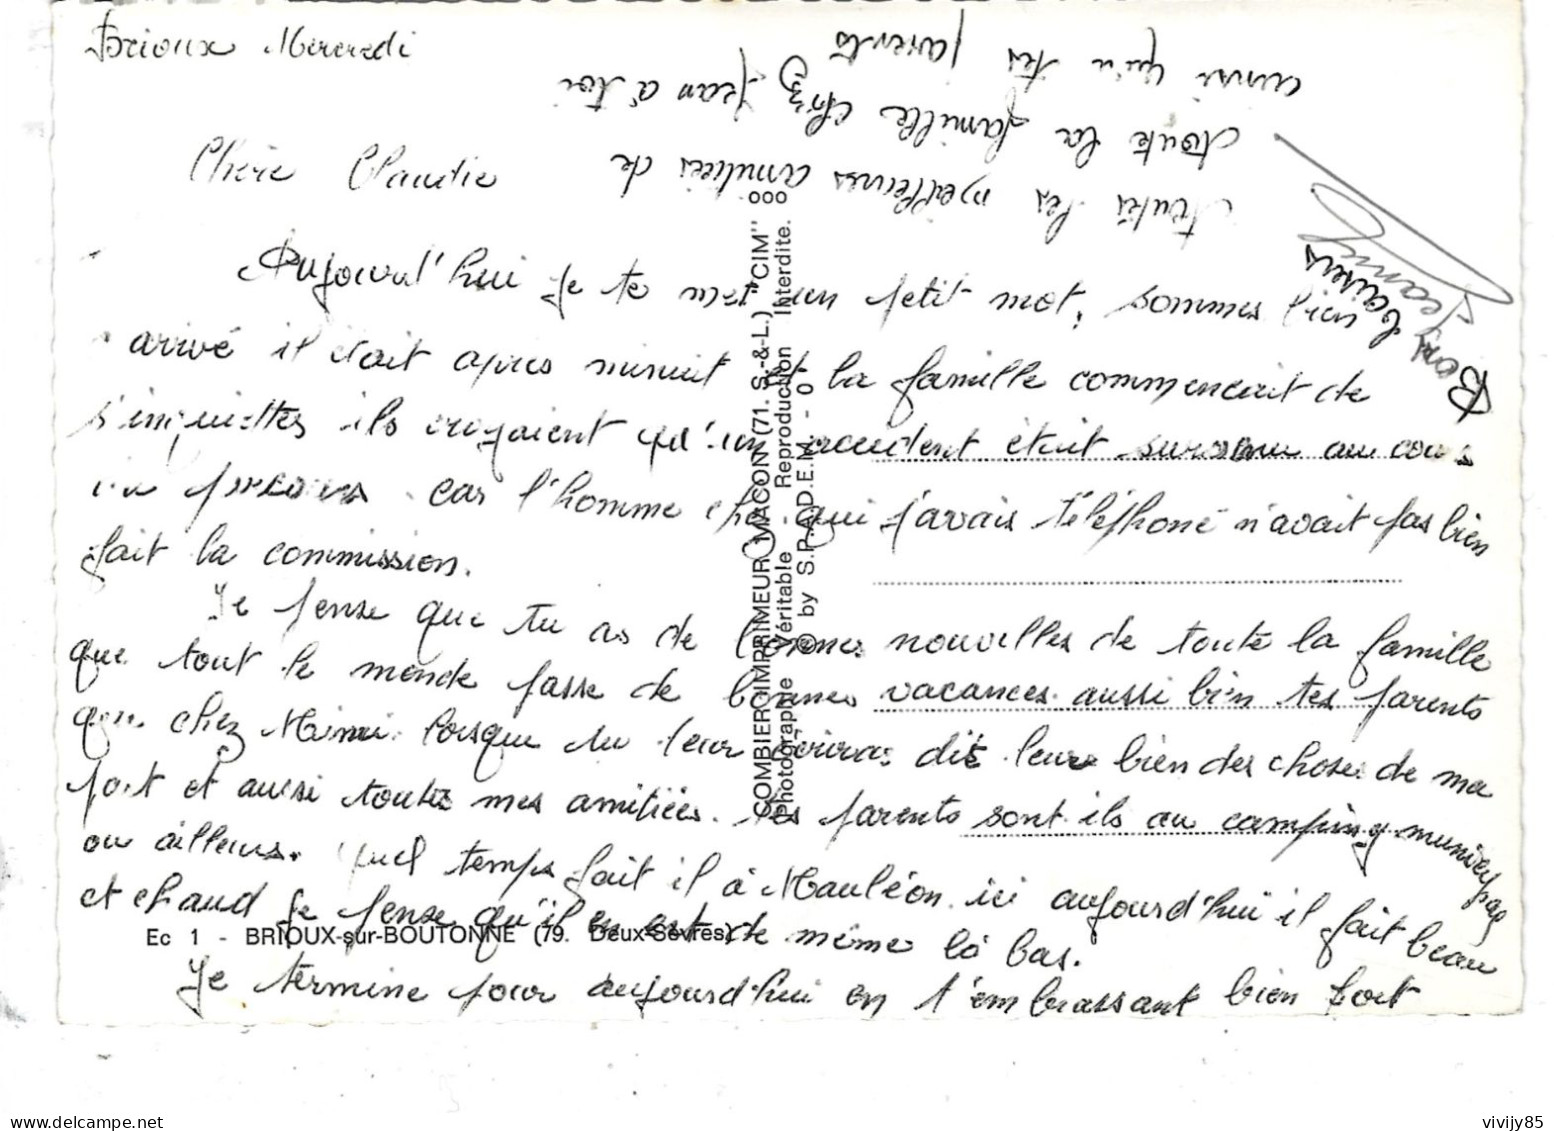 Brioux Mercredi
Chère Claudie
Aujourd'hui je te un petit mot, sommes bien
arrivé il était après minuit et la famille commencait de
s'inquietter ils croyaient qu'un accident était survenu au cours
du parcours. car l'homme qui j'avais téléphoné n'avait pas bien
fait la commission.
Je pense que tu as de bonnes nouvelles de toute la famille
que tout le monde passe de bonnes vacances aussi bien tes parents
que chez Mimi. lorsque tu leur écriras dis leur bien des choses de ma
part et aussi toutes mes amitiées. tes parents sont ils au camping municipal
ou ailleurs. Quel temps fait il à Mauléon. ici aujourd'hui il fait beau
et chaud je pense qu'il en est de même là bas.
Je termine pour aujourd'hui en t'embrassant bien fort
Toutes les meilleures amitiées de
toute la famille chez Jean à toi
ainsi qu'à tes parents
Bons baisers
Jeanne
COMBIER IMPRIMEUR MACON (71. S.-&-L.) "CIM"
Photographie Véritable - Reproduction Interdite.
© by S.P.A.D.E.M. - 0
ooo
Ec 1 - BRIOUX-sur-BOUTONNE (79. Deux-Sèvres)
vivijy85